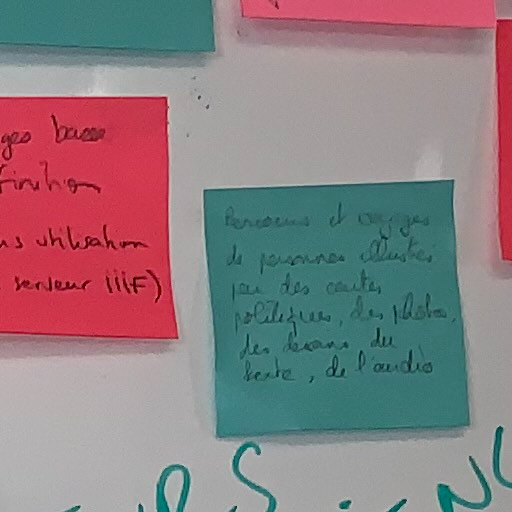 ges basse
finition
ns utilisation
serveur iiiF)
Parcours et voyages
de personnes illustrés
par des cartes
politiques, des photos,
des dessins du
texte, de l'audio